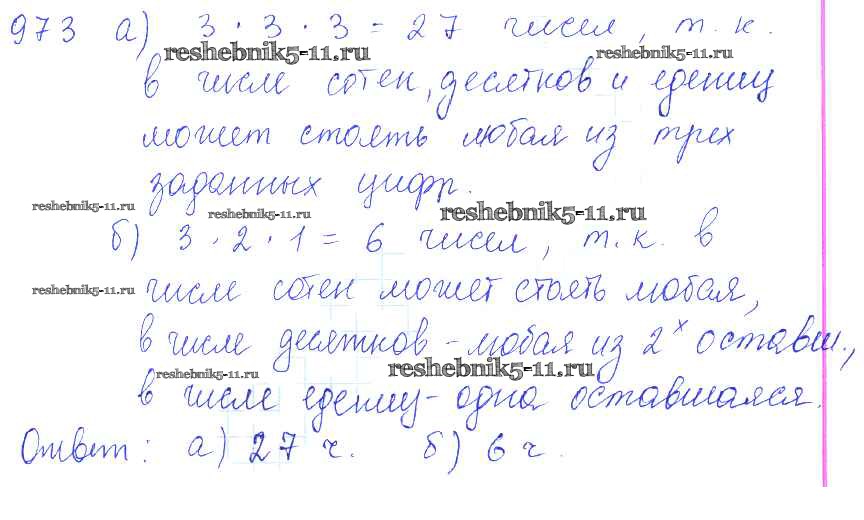 973 а) 3 · 3 · 3 = 27 чисел, т. к.
reshebnik5-11.ru reshebnik5-11.ru
в числе сотен, десятков и едениц
может стоять любая из трех
заданных цифр.
reshebnik5-11.ru reshebnik5-11.ru reshebnik5-11.ru
б) 3 · 2 · 1 = 6 чисел, т. к. в
reshebnik5-11.ru числе сотен может стоять любая,
в числе десятков - любая из 2х оставш.,
reshebnik5-11.ru reshebnik5-11.ru
в числе едениц - одна оставшаяся.
Ответ: а) 27 ч. б) 6 ч.